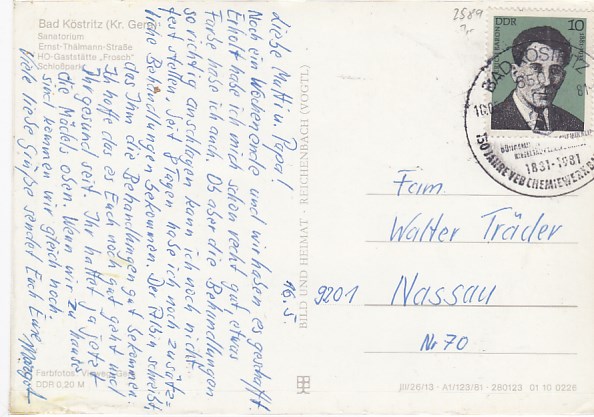 Bad Köstritz (Kr. Gera)
Sanatorium
Ernst-Thälmann-Straße
HO-Gaststätte „Frosch"
Schloßpark
16.5.
Liebe Mutti u. Papa!
Noch ein Wochenende und wir haben es geschafft.
Erholt habe ich mich schon recht gut, etwas
Farbe habe ich auch. Ob aber die Behandlungen
so richtig anschlagen kann ich noch nicht
feststellen. Seit 8 Tagen habe ich noch zusätz=
liche Behandlungen bekommen. Der Albin schreibt,
das Ihm die Behandlungen gut bekommen.
Ich hoffe das es Euch noch gut geht und
Ihr gesund seit. Ihr hattet ja jetzt
die Mädels oben. Wenn wir zu hause
sind kommen wir gleich hoch.
Viele liebe Grüße sendet Euch Eure Margot
Farbfotos:
DDR 0,20 M
BILD UND HEIMAT · REICHENBACH (VOGTL)
2589
DDR
10
BAD KÖSTRITZ
1831-1981
150 JAHRE VEB CHEMIEWERK
Fam.
Walter Träder
9201 Nassau
Nr 70
JII/26/13 - A1/123/81 - 280123 01 10 0226